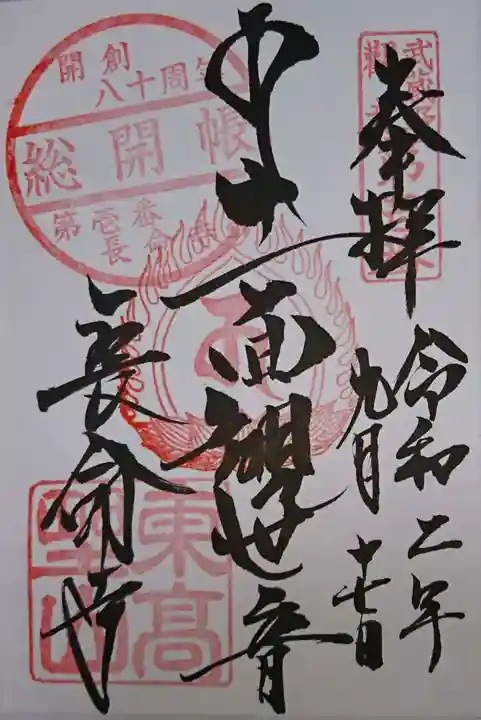 奉拝
令和二年
九月十七日
十一面観世音
長命寺
武蔵野
観音
第壱番
開創
八十周年
総開帳
第壱番
長命寺
東高
野山